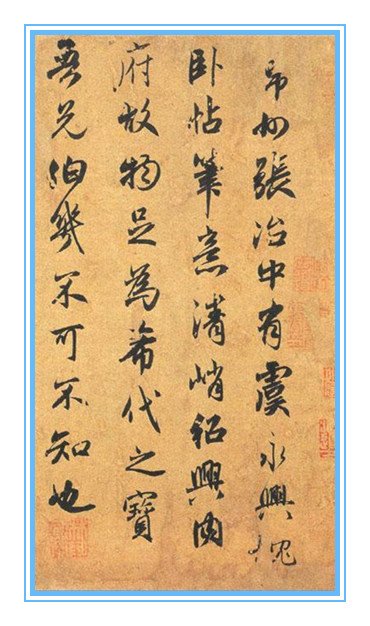 州張治中有虞永興枕
卧帖筆意清峭紹興内
府故物足為希代之寶
吾兄伯幾不可不知也